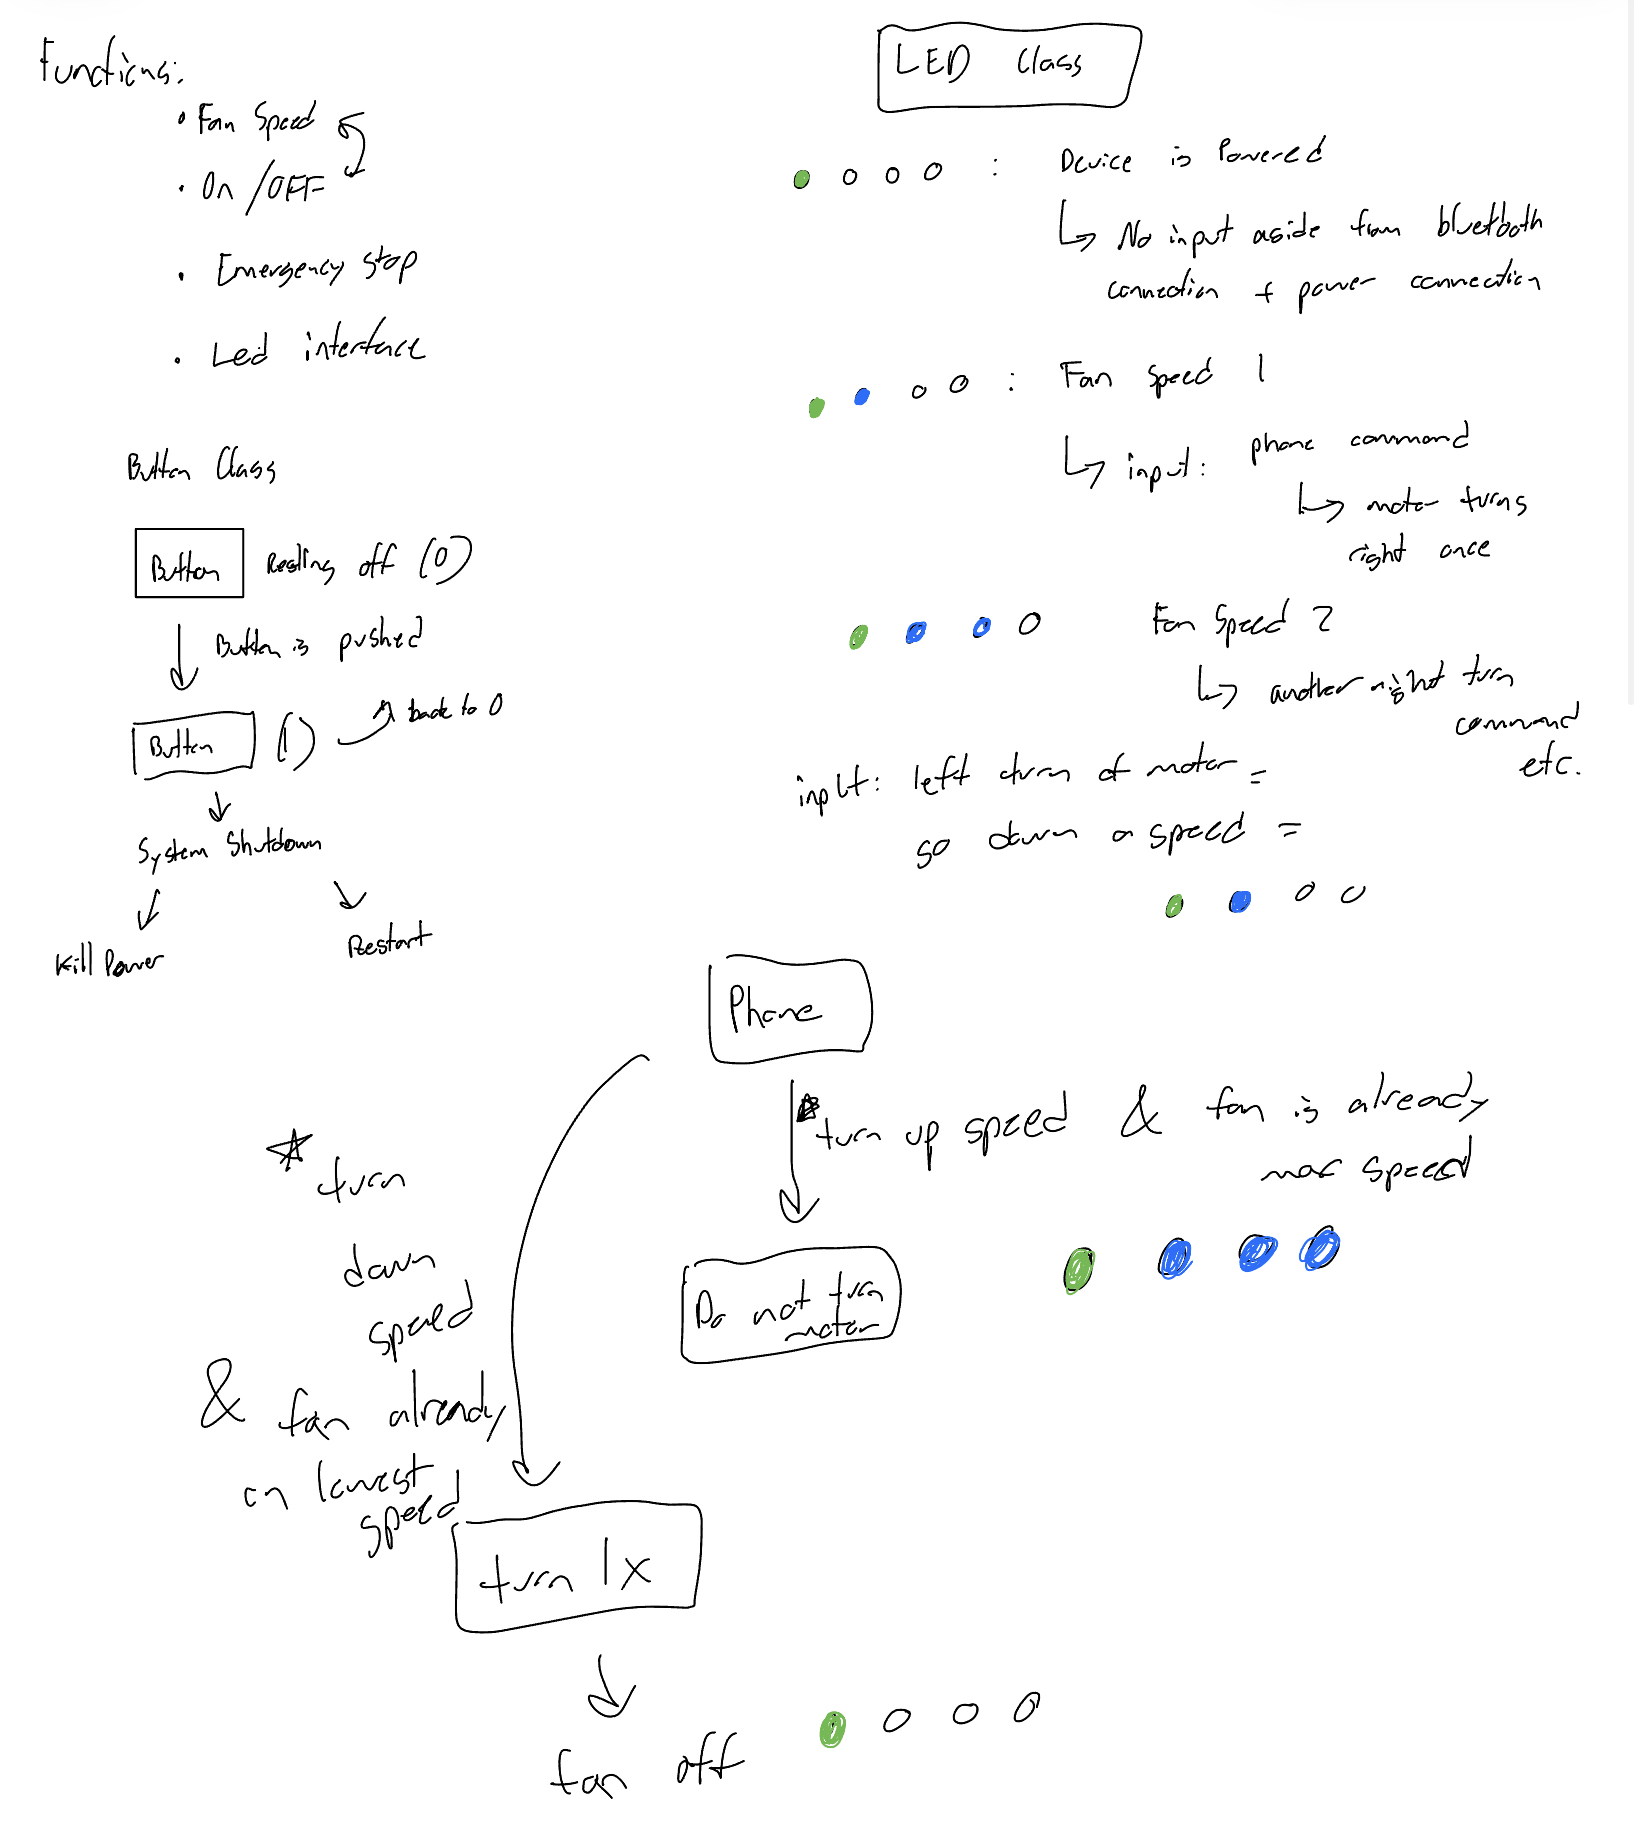 Functions:
• Fan Speed
• On/OFF
• Emergency stop
• Led interface
Button Class
Button
Resting off (0)
Button is pushed
Button
(1)
back to 0
System Shutdown
Kill Power
Restart
LED Class
: Device is Powered
No input aside from bluetooth
connection + power connection
: Fan Speed 1
input: phone command
motor turns
right once
Fan Speed 2
another right turn
command
etc.
input: left turn of motor =
so down a speed =
Phone
turn up speed & fan is already
max speed
Do not turn
motor
turn
down
speed
& fan already
on lowest
speed
turn 1x
fan off